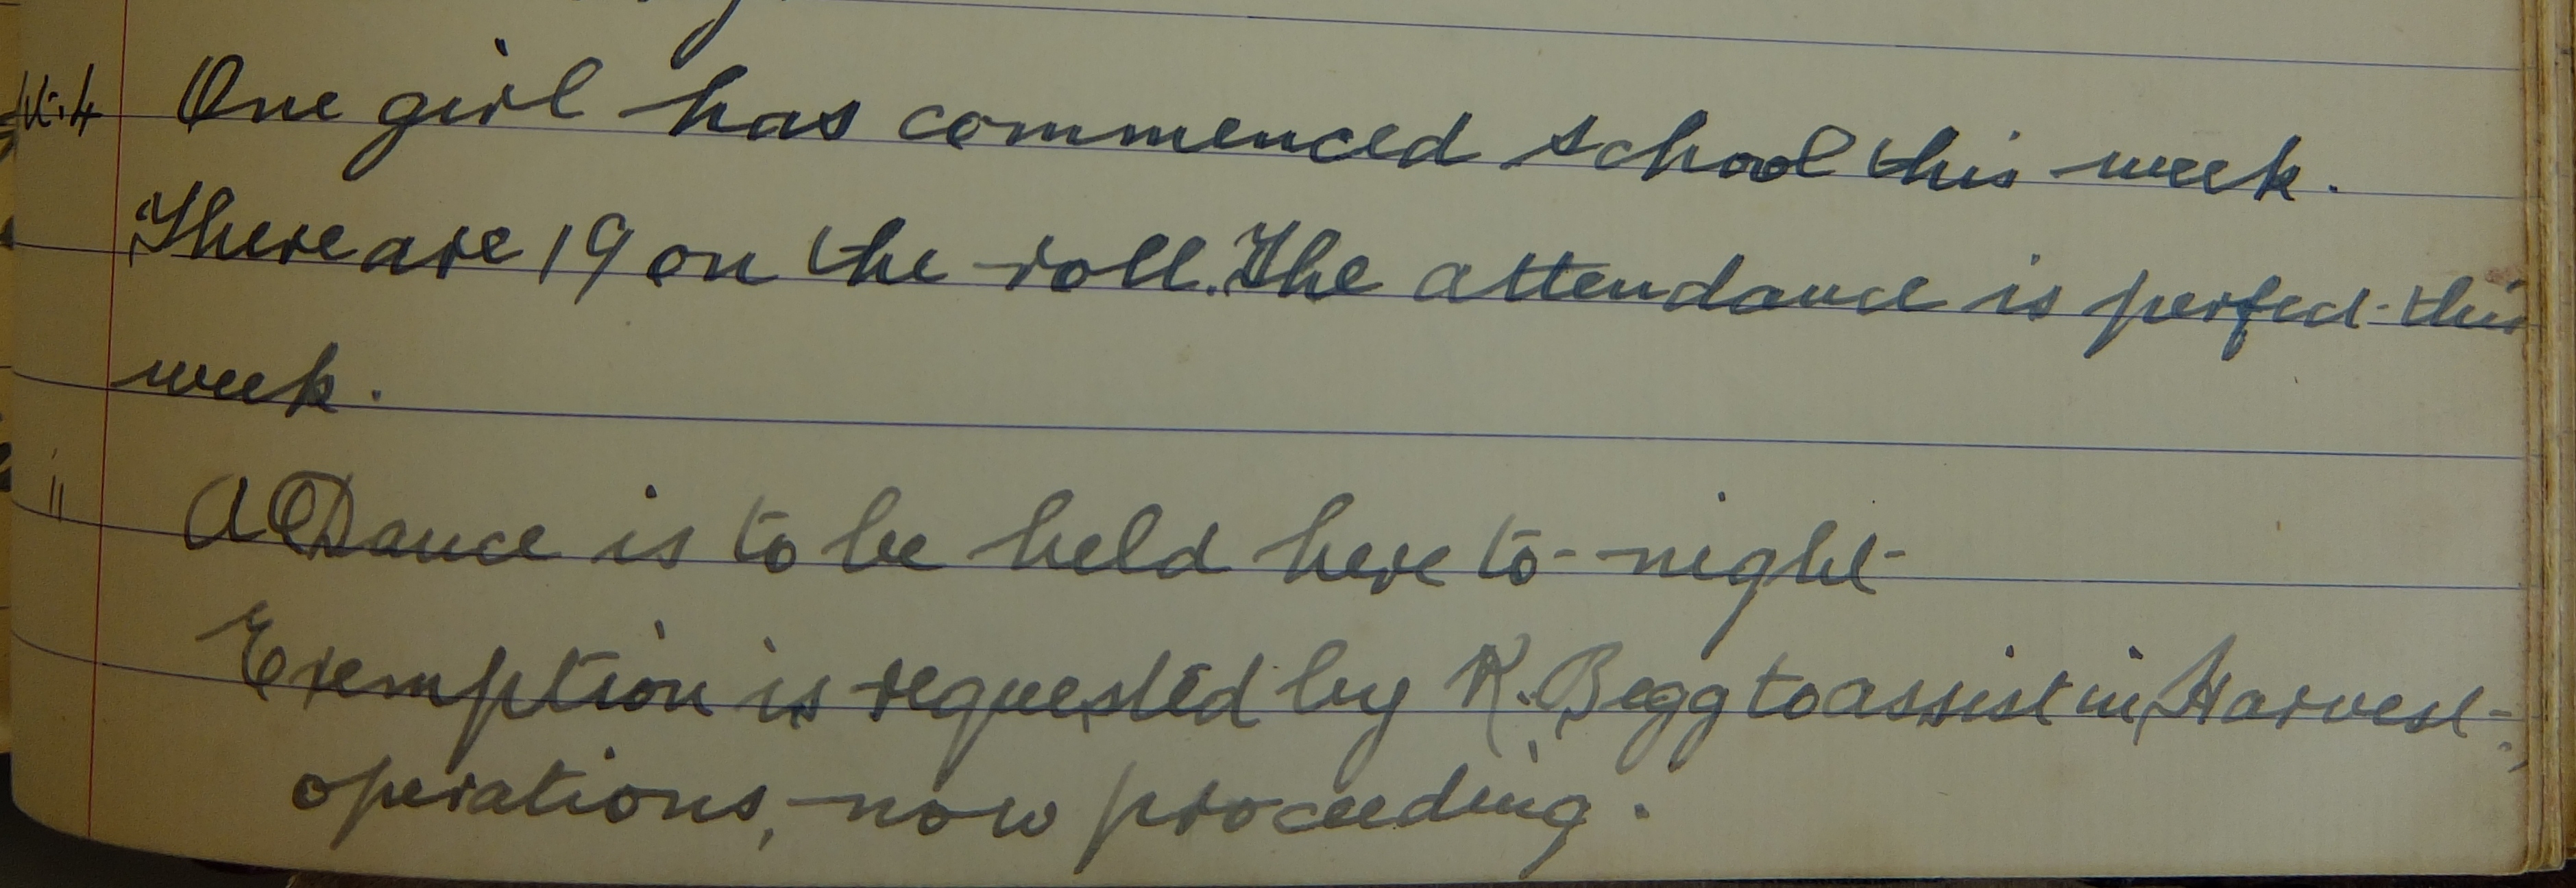 One girl has commenced school this week.
There are 19 on the roll. The attendance is perfect this
week.
11 A Dance is to be held here to-night
Exemption is requested by K. Begg to assist in Harvest
operations, now proceeding.